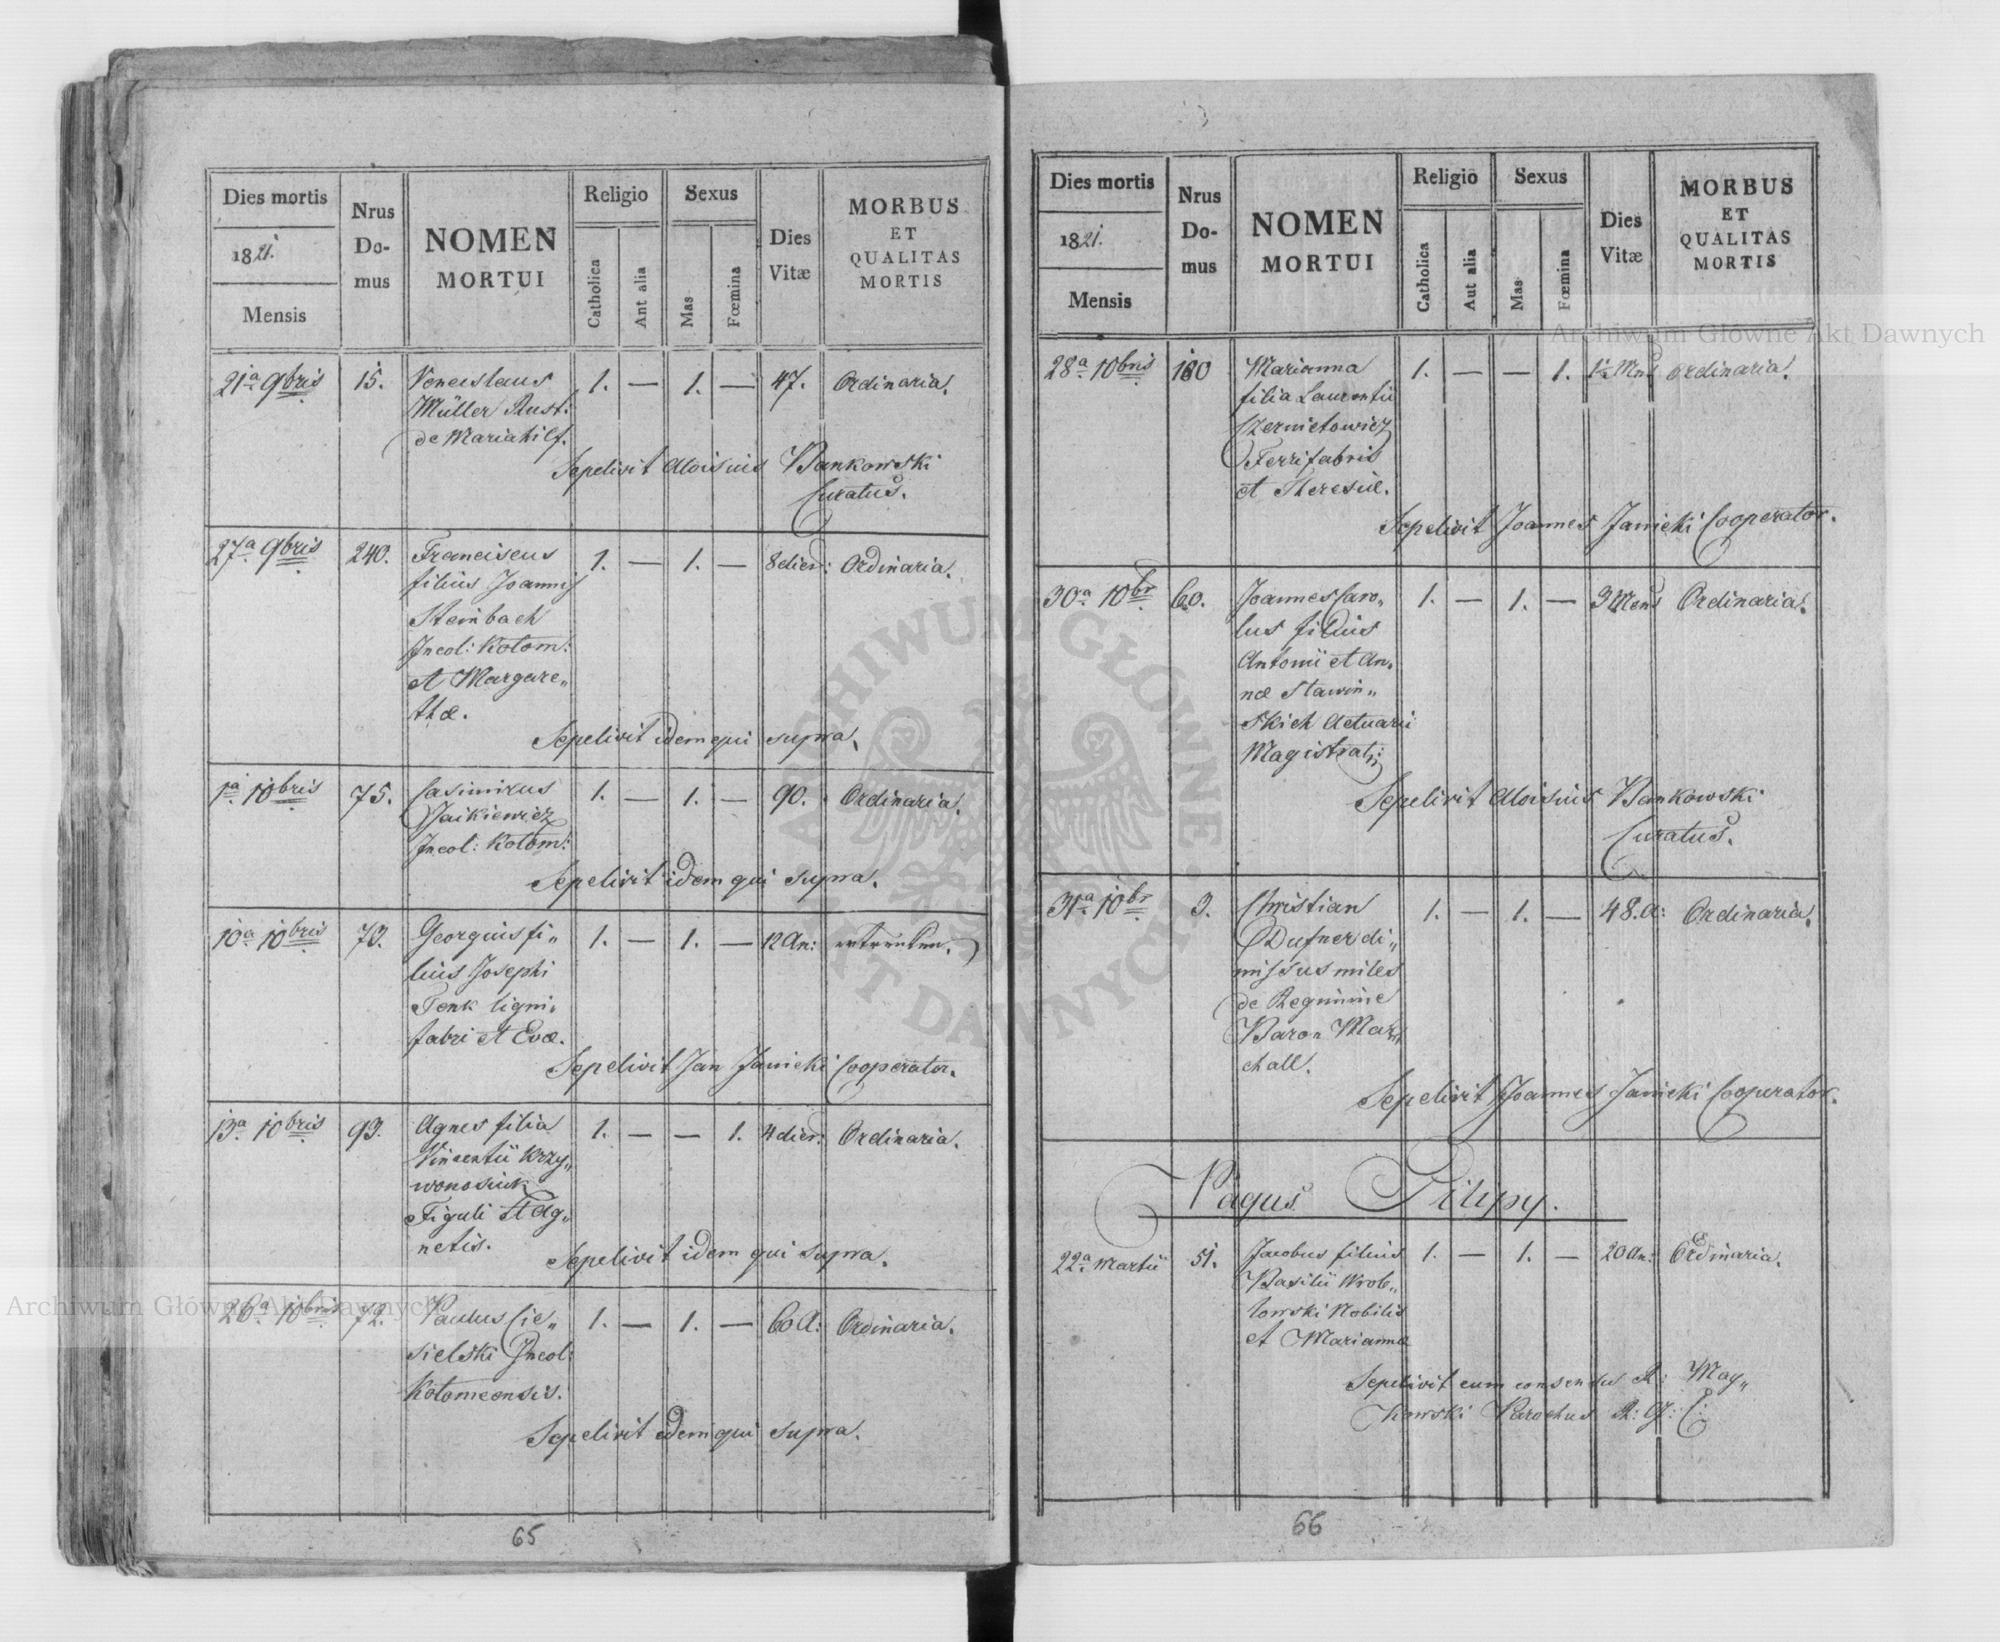 Dies mortis
1821.
Mensis
Nrus
Do-
mus
NOMEN
MORTUI
Religio
Catholica
Ant alia
Sexus
Mas
Fœmina
Dies
Vitæ
MORBUS
ET
QUALITAS
MORTIS
21a 9bris 15. Venceslaus 1. — 1. — 47. Ordinaria.
Müller Rust:
de Mariahilf.
Sepelivit Aloisius Bankowski
Curatus.
27a 9bris 240. Franciscus 1. — 1. — 8 dier: Ordinaria.
filius Joannis
Steinbach
Incol: Kolom:
et Margare„
thæ.
Sepelivit idem qui supra.
1a 10bris 75. Casimirus 1. — 1. — 90. Ordinaria.
Jaikiewicz
Incol: Kolom:
Sepelivit idem qui supra.
10a 10bris 73. Georgius fi„ 1. — 1. — 12 An:
lius Josephi
Tenk ligni„
fabri et Evæ.
Sepelivit Jan Janicki Cooperator.
13a 10bris 93. Agnes filia 1. — — 1. 4 dier: Ordinaria.
Vincentii Krzy„
wonosiuk
Figuli et Ag„
netis.
Sepelivit idem qui supra.
26a 10bris 72. Paulus Cie„ 1. — 1. — 60 A: Ordinaria.
sielski Incol:
Kolomeensis.
Sepelivit idem qui supra.
65
Dies mortis
1821.
Mensis
Nrus
Do-
mus
NOMEN
MORTUI
Religio
Catholica
Aut alia
Sexus
Mas
Fœmina
Dies
Vitæ
MORBUS
ET
QUALITAS
MORTIS
28a 10bris 180 Marianna 1. — — 1. Mens Ordinaria.
filia Laurentii
Czernietowicz
Ferrifabris
et Theresiæ.
Sepelivit Joannes Janicki Cooperator.
30a 10br 60. Joannes Caro„ 1. — 1. — 3 Mens Ordinaria.
lus filius
Antonii et An„
næ Stawin„
skich Actuarii
Magistrat:
Sepelivit Aloisius Bankowski
Curatus.
31a 10br 3. Christian 1. — 1. — 48. A: Ordinaria.
Dufner di„
missus miles
de Regimine
Baron Mar„
chall.
Sepelivit Joannes Janicki Cooperator.
Pagus Pilipy.
22a Martii 51. Jacobus filius 1. — 1. — 20 An: Ordinaria.
Basilii Wrob„
lowski Nobilis
et Mariannæ
Sepelivit cum consensu R: May„
kowski Parochus R: G: C:
66
Archiwum Główne Akt Dawnych
Archiwum Główne Akt Dawnych
ARCHIWUM GŁÓWNE AKT DAWNYCH